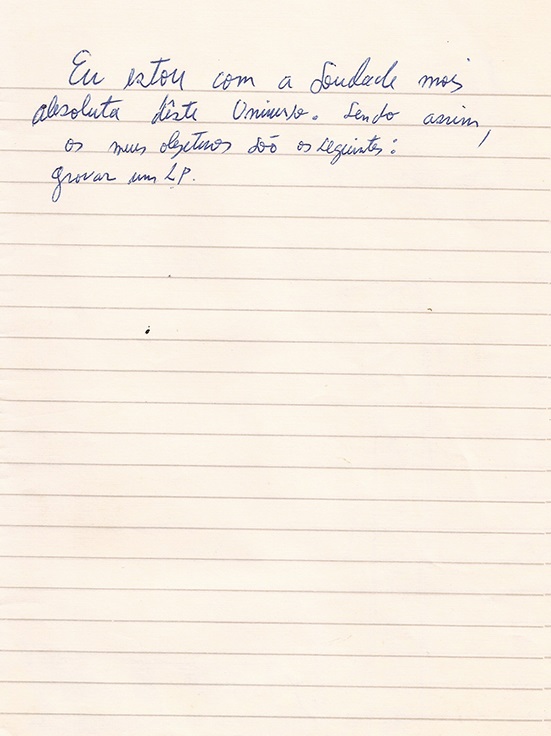 Eu estou com a Soudade mais
absoluta dêste Universo. Sendo assim,
os meus objetivos são os seguintes:
gravar um LP.